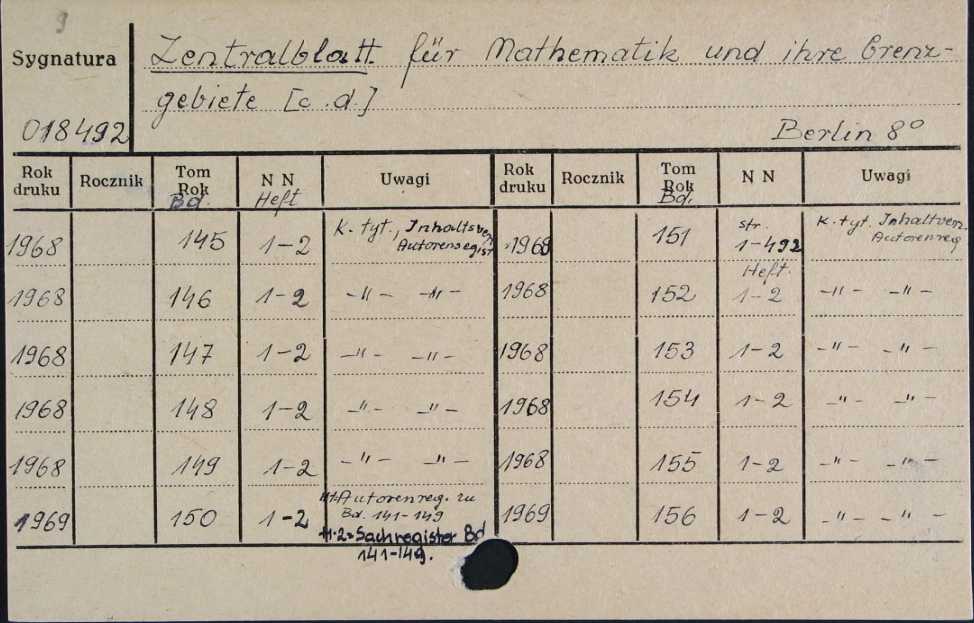 9
Sygnatura Zentralblatt für Mathematik und ihre Grenz-
gebiete [c.d.]
018492 Berlin 8°
Rok druku Rocznik Tom Rok Bd. N N Heft Uwagi Rok druku Rocznik Tom Rok Bd. N N Uwagi
1968 145 1-2 K. tyt., Inhaltsverz. Autorenregist. 1968 151 str. 1-492 K. tyt. Inhaltverz. Autorenreg.
1968 146 1-2 -"- -"- 1968 152 Heft. 1-2 -"- -"-
1968 147 1-2 -"- -"- 1968 153 1-2 -"- -"-
1968 148 1-2 -"- -"- 1968 154 1-2 -"- -"-
1968 149 1-2 -"- -"- 1968 155 1-2 -"- -"-
1969 150 1-2 H1.Autorenreg. zu Bd. 141-149 1969 156 1-2 -"- -"-
H.2=Sachregister Bd
141-149.